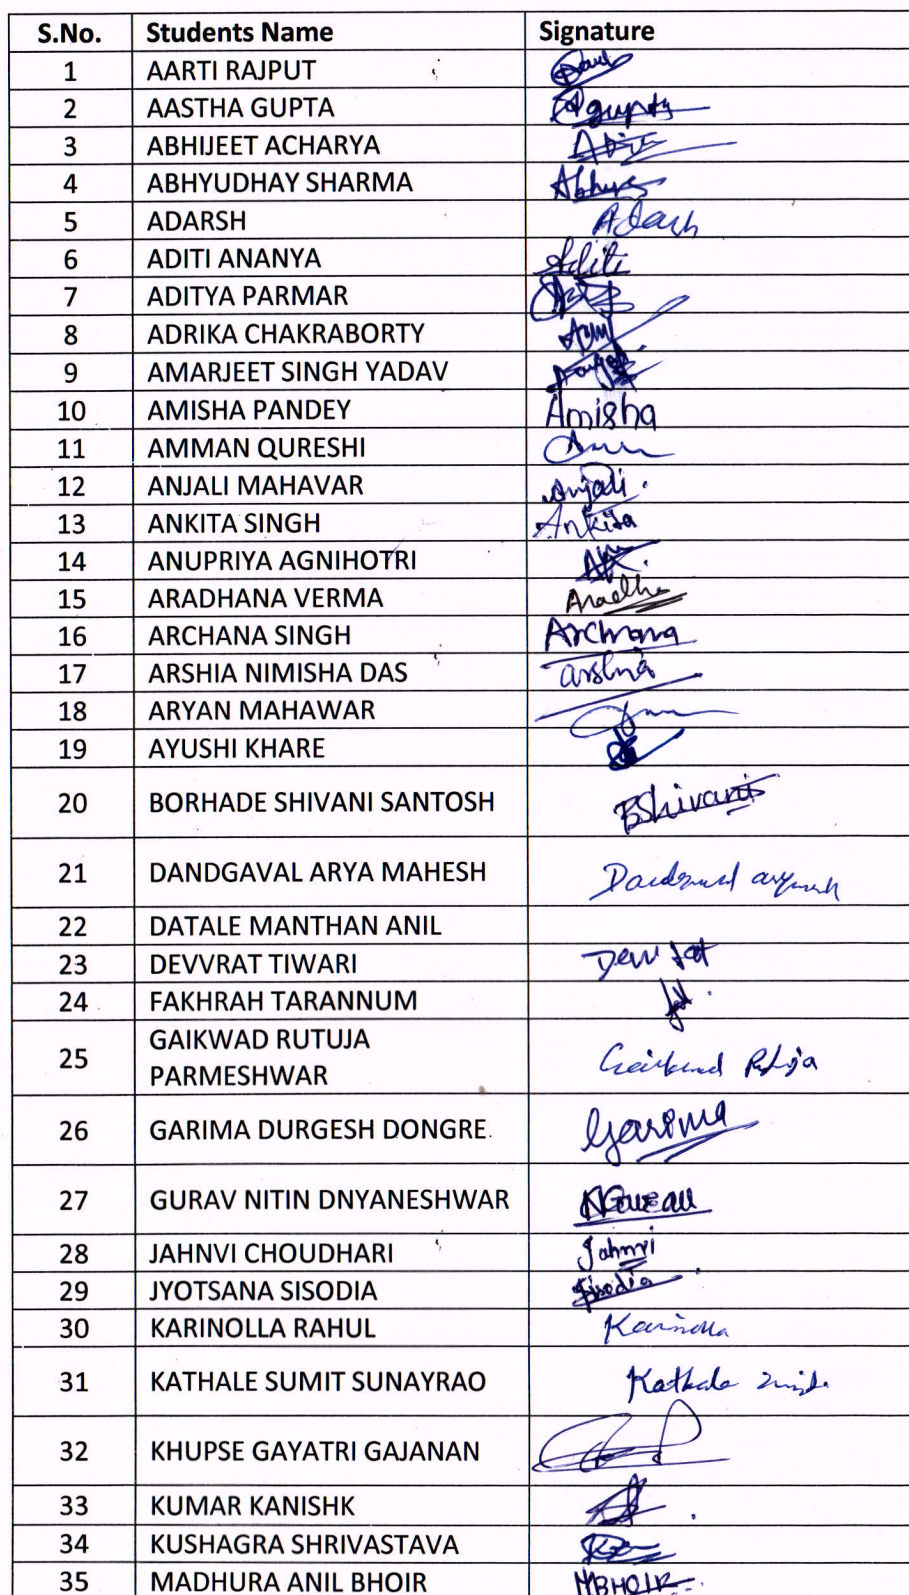 S.No. Students Name Signature
1 AARTI RAJPUT
2 AASTHA GUPTA Agupta
3 ABHIJEET ACHARYA
4 ABHYUDHAY SHARMA
5 ADARSH Adarsh
6 ADITI ANANYA Aditi
7 ADITYA PARMAR
8 ADRIKA CHAKRABORTY
9 AMARJEET SINGH YADAV
10 AMISHA PANDEY Amisha
11 AMMAN QURESHI
12 ANJALI MAHAVAR Anjali.
13 ANKITA SINGH Ankita
14 ANUPRIYA AGNIHOTRI
15 ARADHANA VERMA
16 ARCHANA SINGH Archana
17 ARSHIA NIMISHA DAS arshia
18 ARYAN MAHAWAR
19 AYUSHI KHARE
20 BORHADE SHIVANI SANTOSH BShivanis
21 DANDGAVAL ARYA MAHESH
22 DATALE MANTHAN ANIL
23 DEVVRAT TIWARI
24 FAKHRAH TARANNUM
25 GAIKWAD RUTUJA
PARMESHWAR
26 GARIMA DURGESH DONGRE Garima
27 GURAV NITIN DNYANESHWAR
28 JAHNVI CHOUDHARI Jahnvi
29 JYOTSANA SISODIA Sisodia
30 KARINOLLA RAHUL Karinolla
31 KATHALE SUMIT SUNAYRAO Kathale
32 KHUPSE GAYATRI GAJANAN
33 KUMAR KANISHK
34 KUSHAGRA SHRIVASTAVA
35 MADHURA ANIL BHOIR MBHOIR